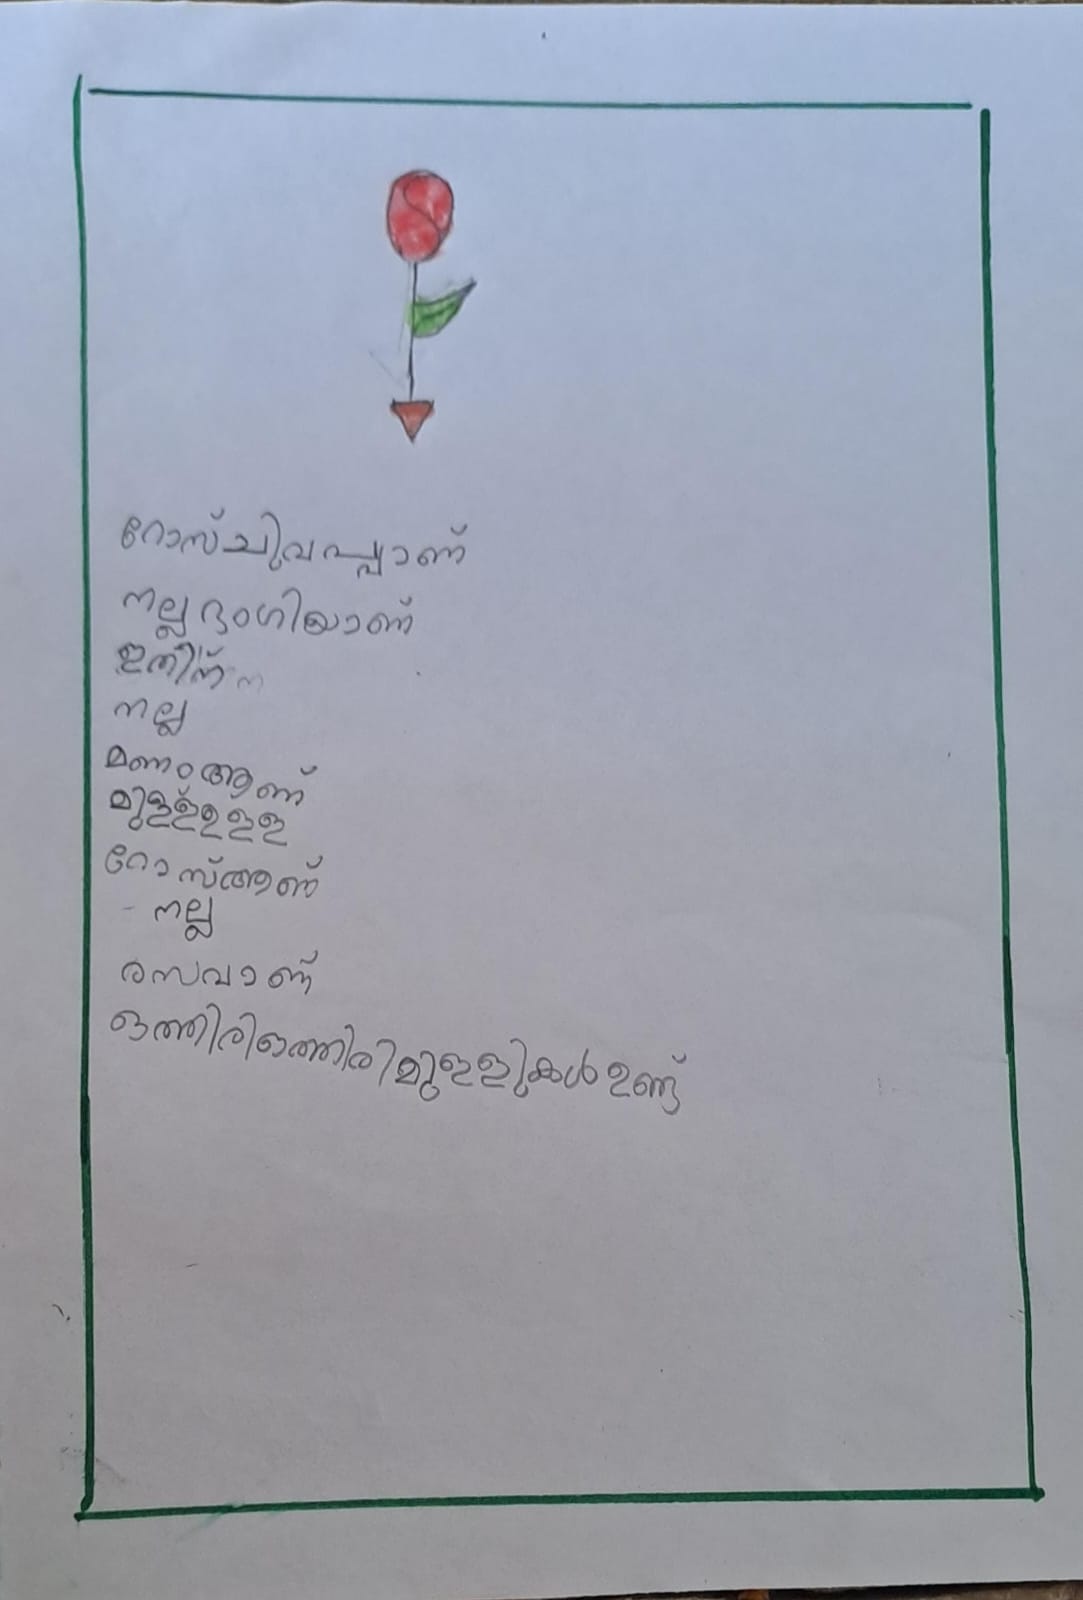 റോസ് ചുവപ്പാണ്
നല്ല ഭംഗിയാണ്
ഇതിന്
നല്ല
മണം ആണ്
മുള്ള്ഉള്ള
റോസ്ആണ്
നല്ല
രസവാണ്
ഒത്തിരിഒത്തിരിമുള്ളുകൾഉണ്ട്